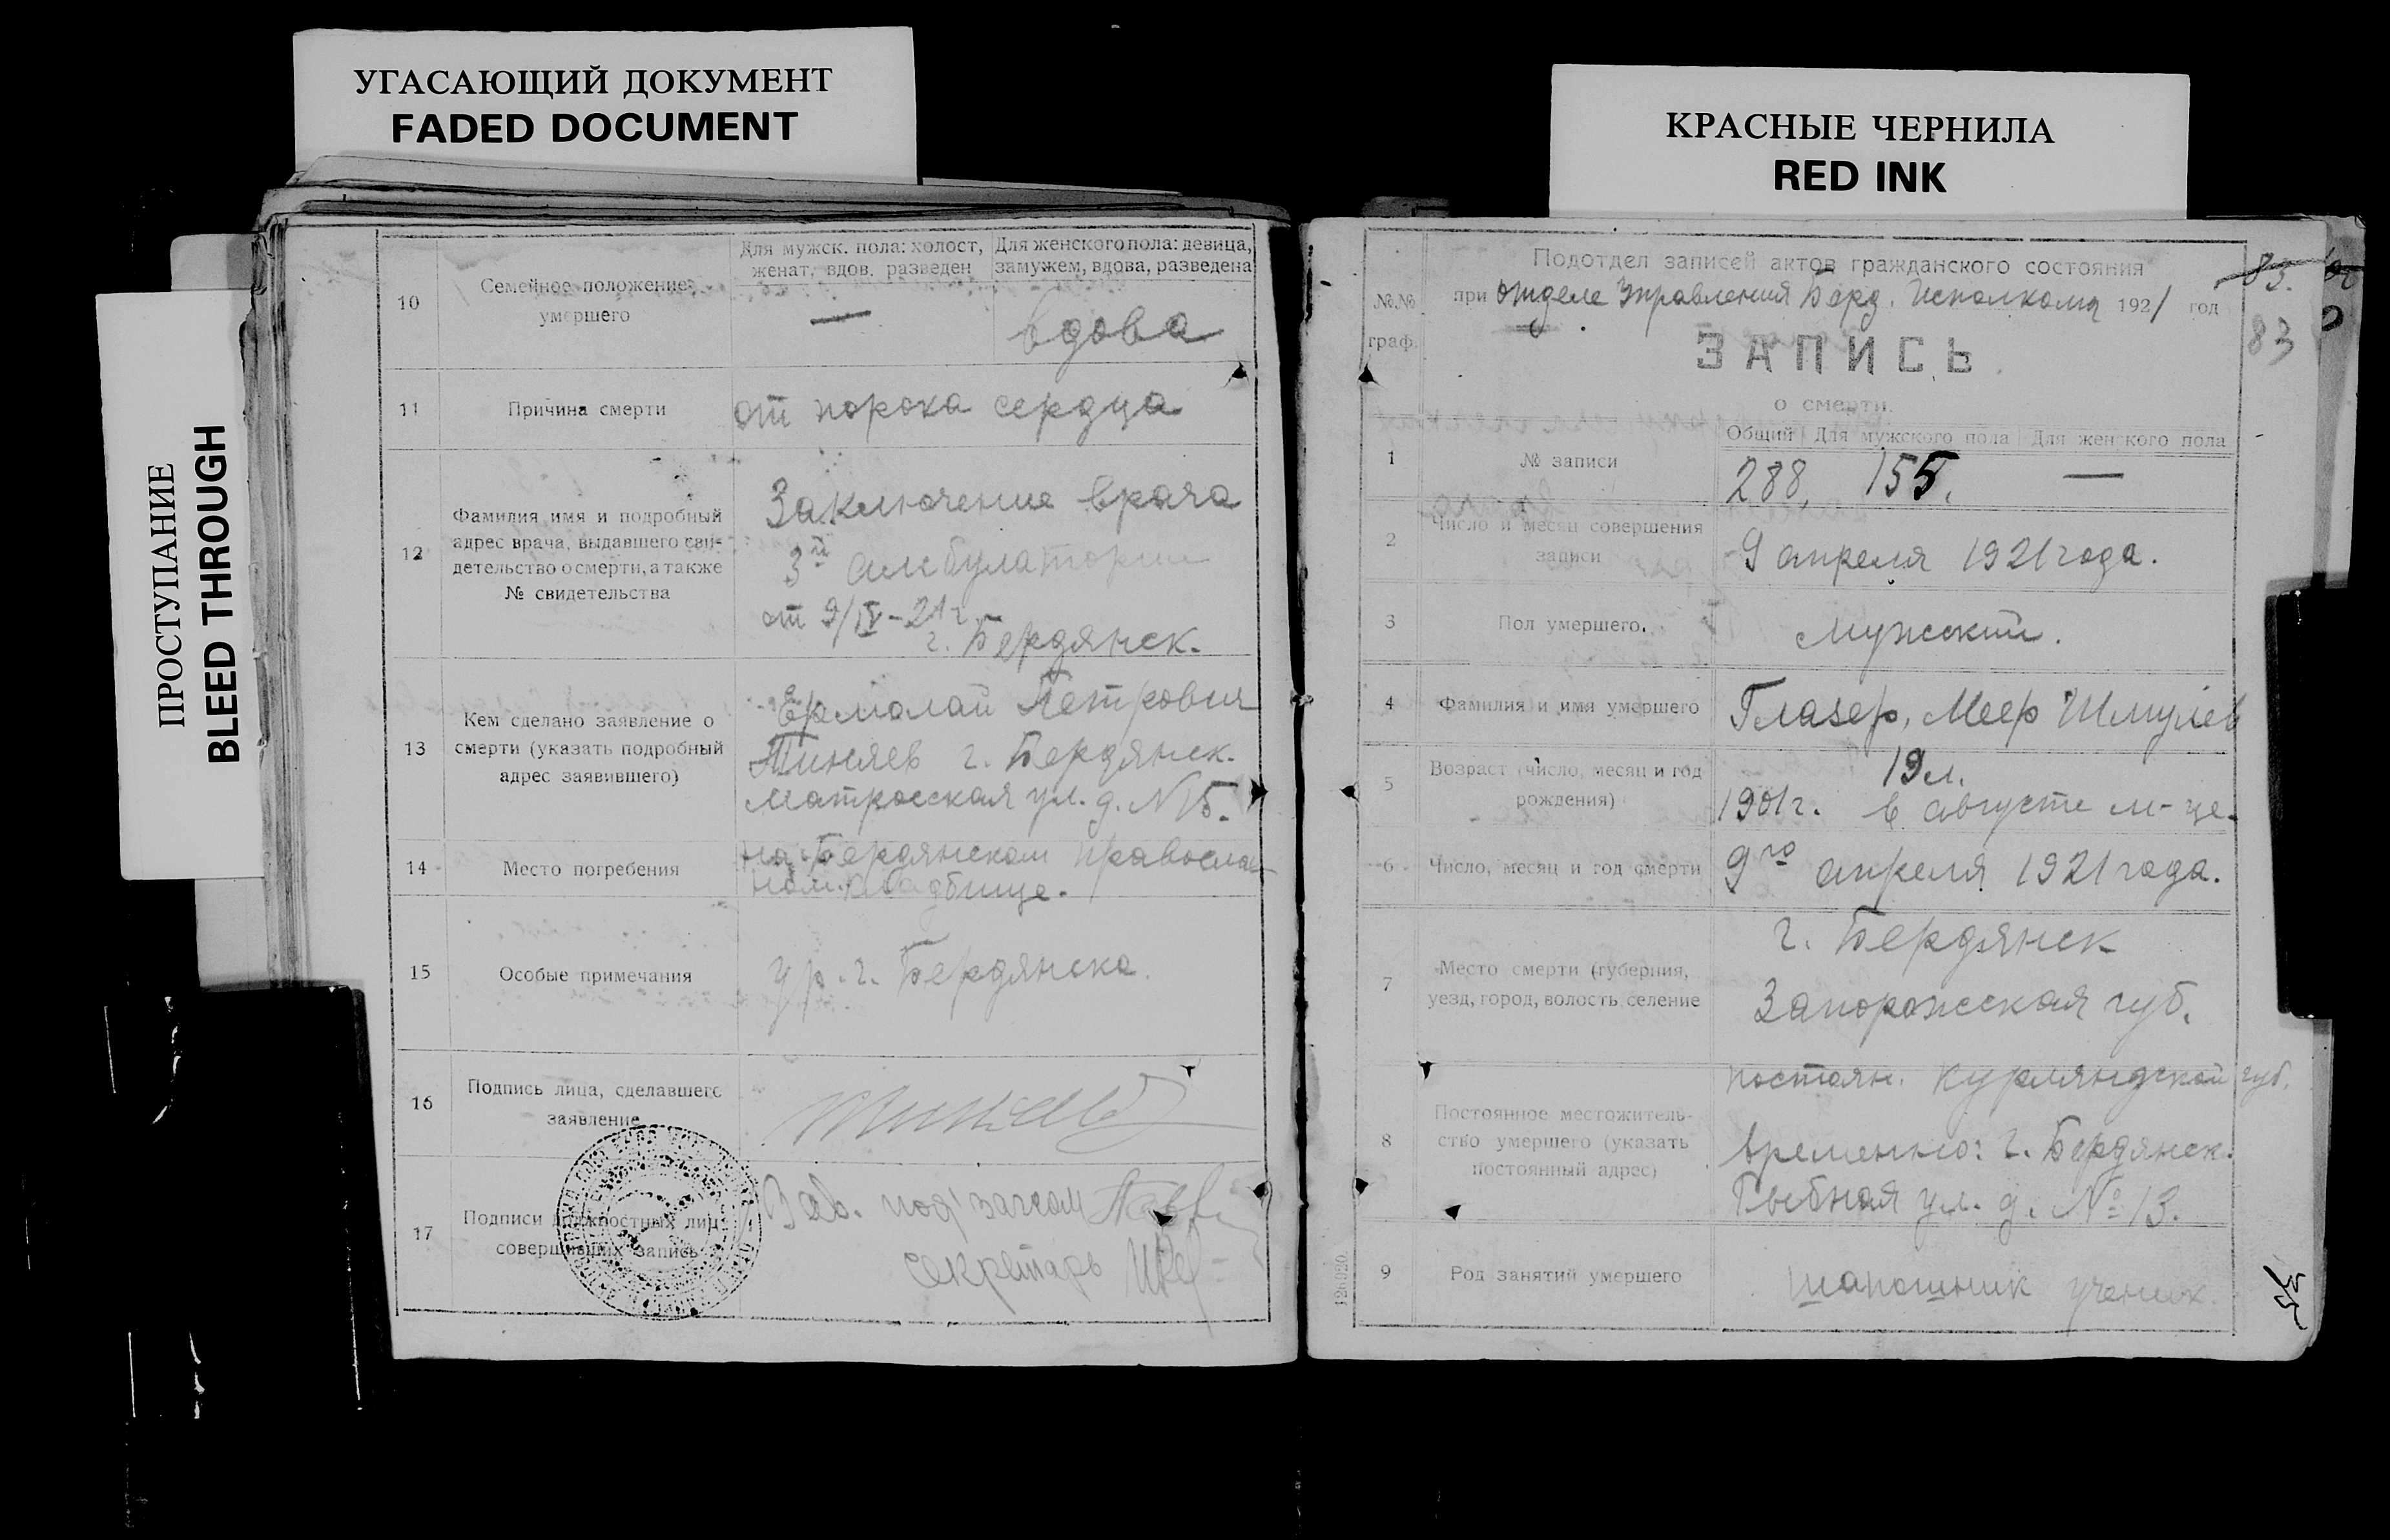 УГАСАЮЩИЙ ДОКУМЕНТ
FADED DOCUMENT
КРАСНЫЕ ЧЕРНИЛА
RED INK
ПРОСТУПАНИЕ
BLEED THROUGH
10
Семейное положение
умершего
Для мужск. пола: холост,
женат, вдов, разведен
Для женского пола: девица,
замужем, вдова, разведена
—
вдова
11
Причина смерти
от порока сердца
12
Фамилия имя и подробный
адрес врача, выдавшего сви-
детельство о смерти, а также
№ свидетельства
Заключение врача
3й амбулатории
от 9/IV-21 г.
г. Бердянск.
13
Кем сделано заявление о
смерти (указать подробный
адрес заявившего)
Ермолай Петрович
Тиняев г. Бердянск.
Матросская ул. д. №
14
Место погребения
на Бердянском православ-
ном кладбище.
15
Особые примечания
ур. г. Бердянска.
16
Подпись лица, сделавшего
заявление
Тиняев
17
Подписи должностных лиц,
совершивших запись
Зав. под
секретарь
№№
граф.
Подотдел записей актов гражданского состояния
при отделе Управления Берд. Исполкома 1921 год
83.
83
ЗАПИСЬ
о смерти.
1
№ записи
Общий Для мужского пола Для женского пола
288, 155. —
2
Число и месяц совершения
записи
9 апреля 1921 года.
3
Пол умершего.
Мужской.
4
Фамилия и имя умершего
Глазер, Меер Шмулев
5
Возраст (число, месяц и год
рождения)
19 л.
1901 г. в августе м-це.
6
Число, месяц и год смерти
9го апреля 1921 года.
7
Место смерти (губерния,
уезд, город, волость, селение
г. Бердянск
Запорожская губ.
8
Постоянное местожитель-
ство умершего (указать
постоянный адрес)
постоян. Курляндской губ.
временно: г. Бердянск.
ул. д. № 13.
9
Род занятий умершего
шапошник ученик.
126020